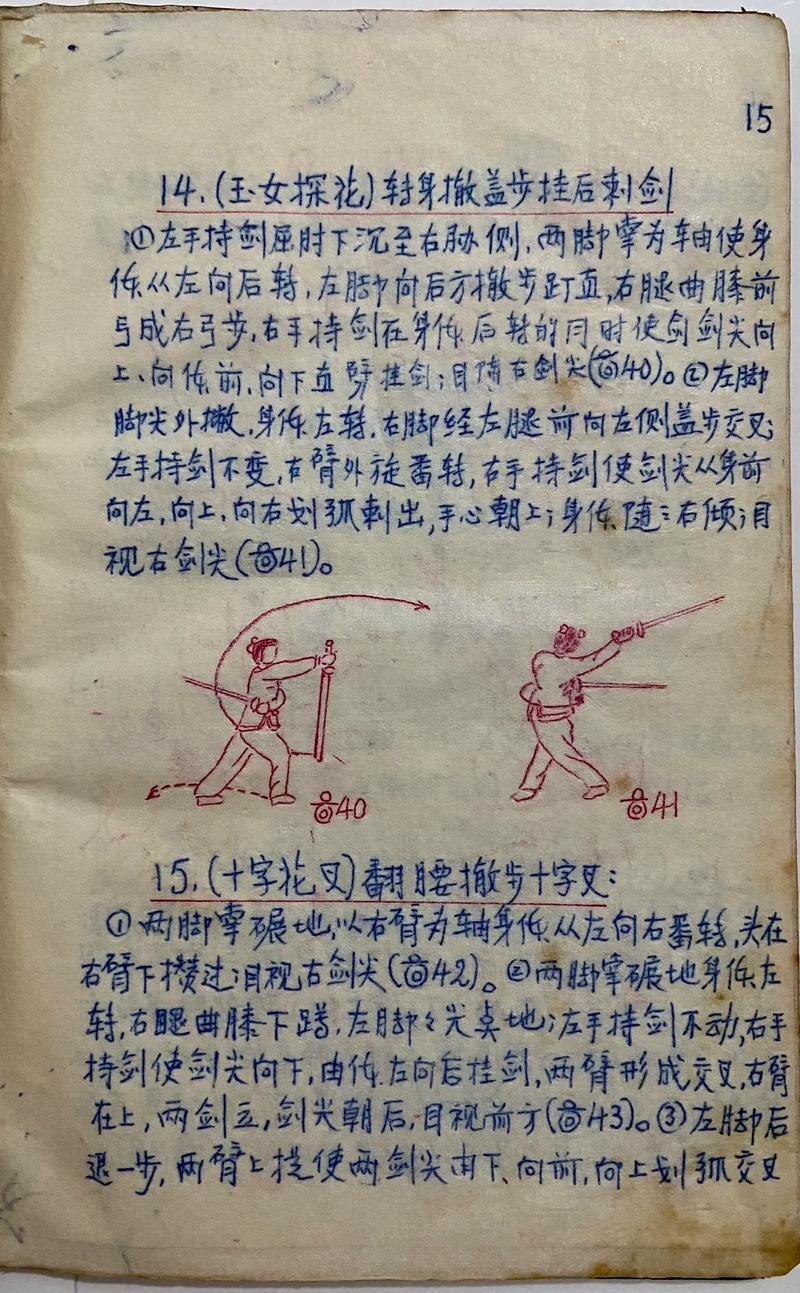 15
14.(玉女探花)转身撤盖步挂后刺剑
①左手持剑屈肘下沉至右胁侧,两脚掌为轴使身
体从左向后转,左脚向后方撤步蹬直,右腿曲膝前
弓成右弓步,右手持剑在身体后转的同时使剑剑尖向
上、向体前、向下直臂挂剑;目随右剑尖(图40)。②左脚
脚尖外撇,身体左转,右脚经左腿前向左侧盖步交叉;
左手持剑不变,右臂外旋番转,右手持剑使剑尖从身前
向左,向上,向右划弧刺出,手心朝上;身体随之右倾;目
视右剑尖(图41)。
图40
图41
15.(十字花叉)翻腰撤步十字叉:
①两脚掌碾地,以右臂为轴身体从左向右番转,头在
右臂下攒过;目视右剑尖(图42)。②两脚掌碾地身体左
转,右腿曲膝下蹲,左脚々尖点地;左手持剑不动,右手
持剑使剑尖向下,由体左向后挂剑,两臂形成交叉,右臂
在上,两剑立,剑尖朝后,目视前方(图43)。③左脚后
退一步,两臂上提使两剑尖由下、向前,向上划弧交叉